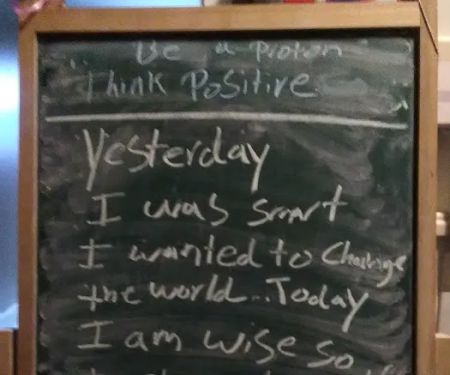 Be a Proton
Think Positive
Yesterday
I was smart
I wanted to Change
the world...Today
I am wise so